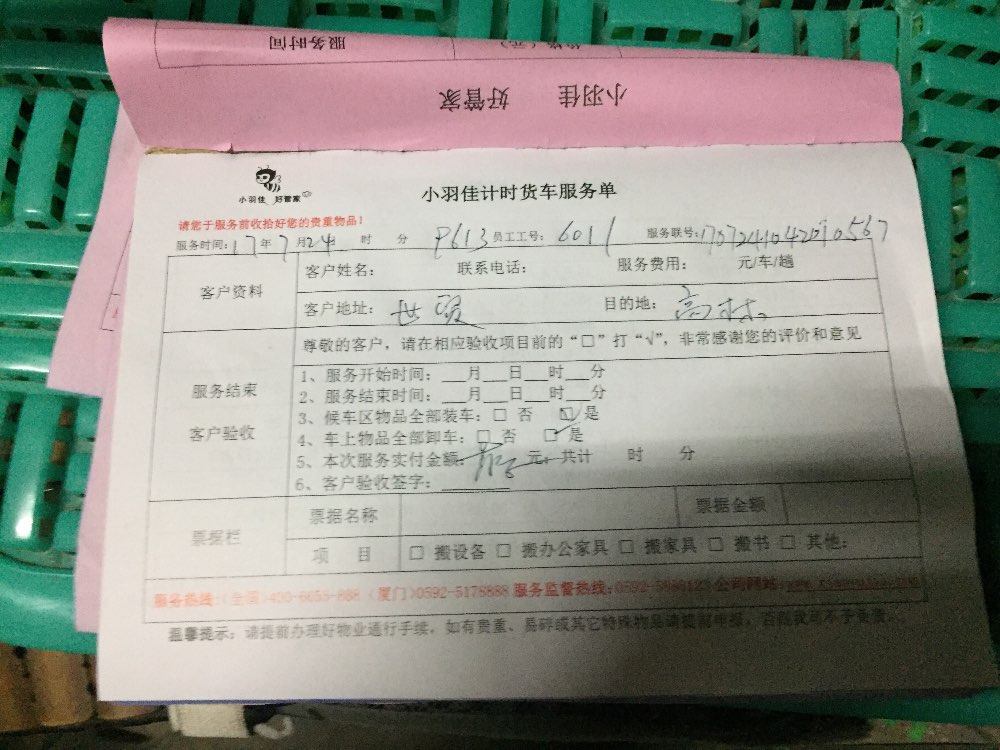 服务时间
价格（元）
小羽佳 好管家
小羽佳 好管家
小羽佳计时货车服务单
请您于服务前收拾好您的贵重物品！
服务时间：17年7月24 时 分 P613 员工工号：6011 服务联号：
客户资料
客户姓名： 联系电话： 服务费用： 元/车/趟
客户地址：世贸 目的地：高林
尊敬的客户，请在相应验收项目前的“□”打“√”，非常感谢您的评价和意见
服务结束
客户验收
1、服务开始时间：___月___日___时___分
2、服务结束时间：___月___日___时___分
3、候车区物品全部装车：□ 否 ☑ 是
4、车上物品全部卸车：□ 否 ☑ 是
5、本次服务实付金额： 元；共计 时 分
6、客户验收签字：
票据栏
票据名称 票据金额
项 目 □ 搬设备 □ 搬办公家具 □ 搬家具 □ 搬书 □ 其他：
服务热线：（全国）400-6655-888（厦门）0592-5178888 服务监督热线： 公司网站：
温馨提示：请提前办理好物业通行手续，如有贵重、易碎或其它特殊物品请提前申报，否则我司不予负责。